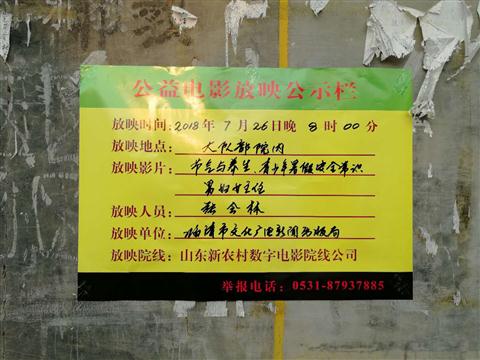 公益电影放映公示栏
放映时间:2018年7月26日晚8时00分
放映地点:大队部院内
放映影片:节气与养生、青少年暑假安全常识
男妇女主任
放映人员:张会林
放映单位:临清市文化广电新闻出版局
放映院线:山东新农村数字电影院线公司
举报电话:0531-87937885